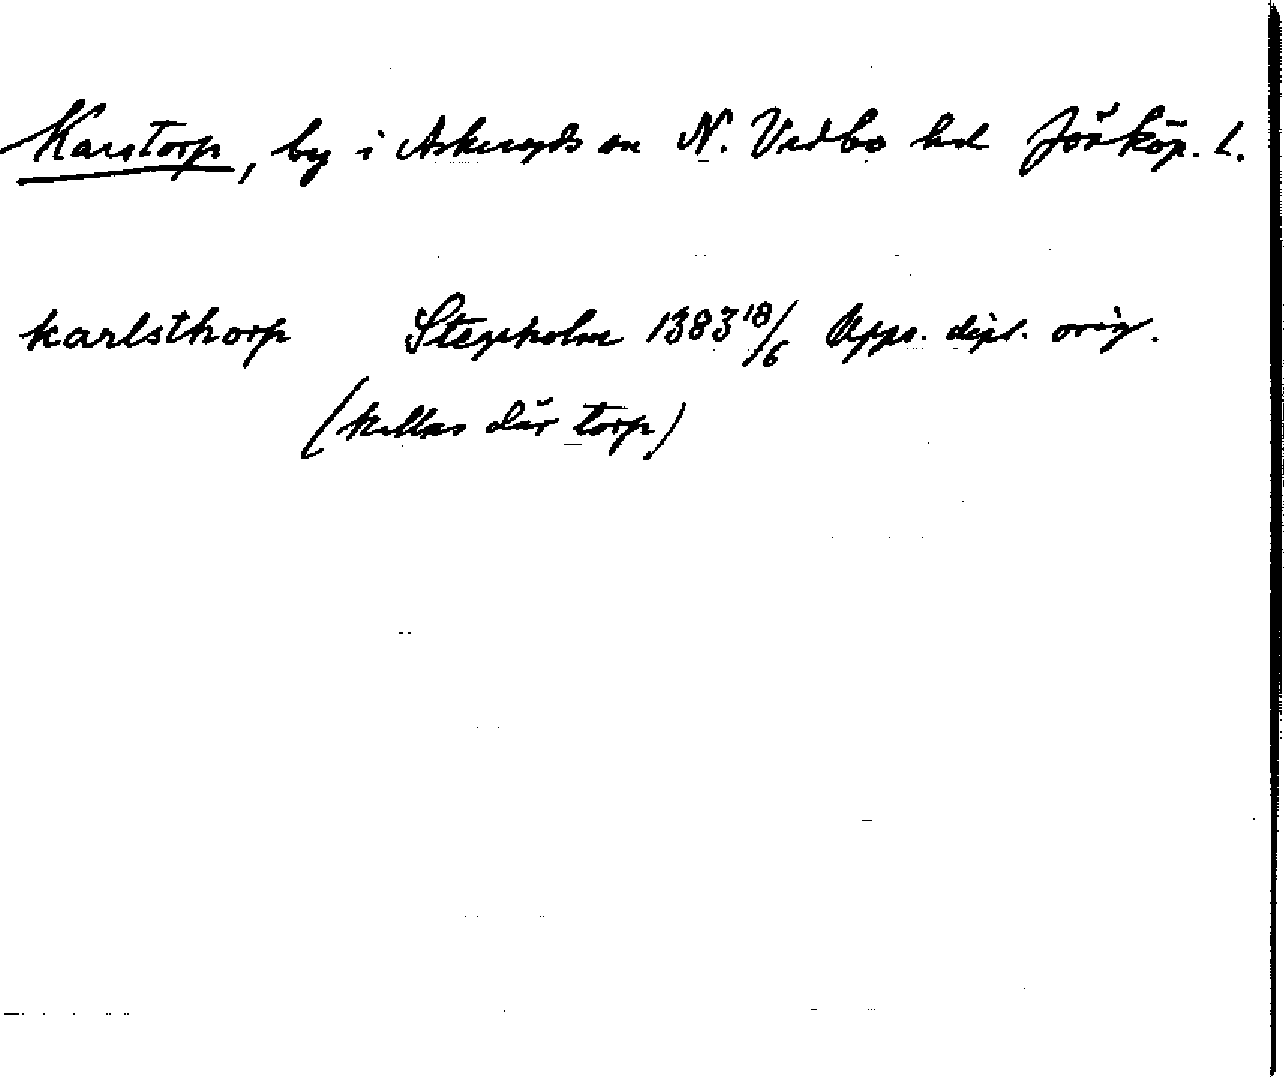 Karstorp, by i Askeryds sn N. Vedbo hd Jönköp. L.
karlsthorp Stegeholm 1383 18/6 Upps. dipl. orig.
(kallas där torp)